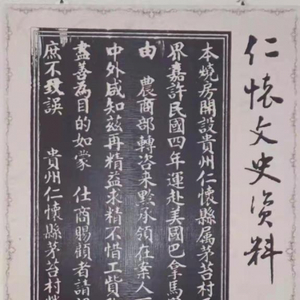 仁怀文史资料
本燒房開設貴州仁懷縣属茅台村
界嘉許民國四年運赴美國巴拿馬
由 農商部轉咨来黔承領在案人
中外咸知茲再精益求精不惜工貲
盡善為目的如蒙 仕商賜顧者請
庶不致誤 貴州仁懷縣茅台村